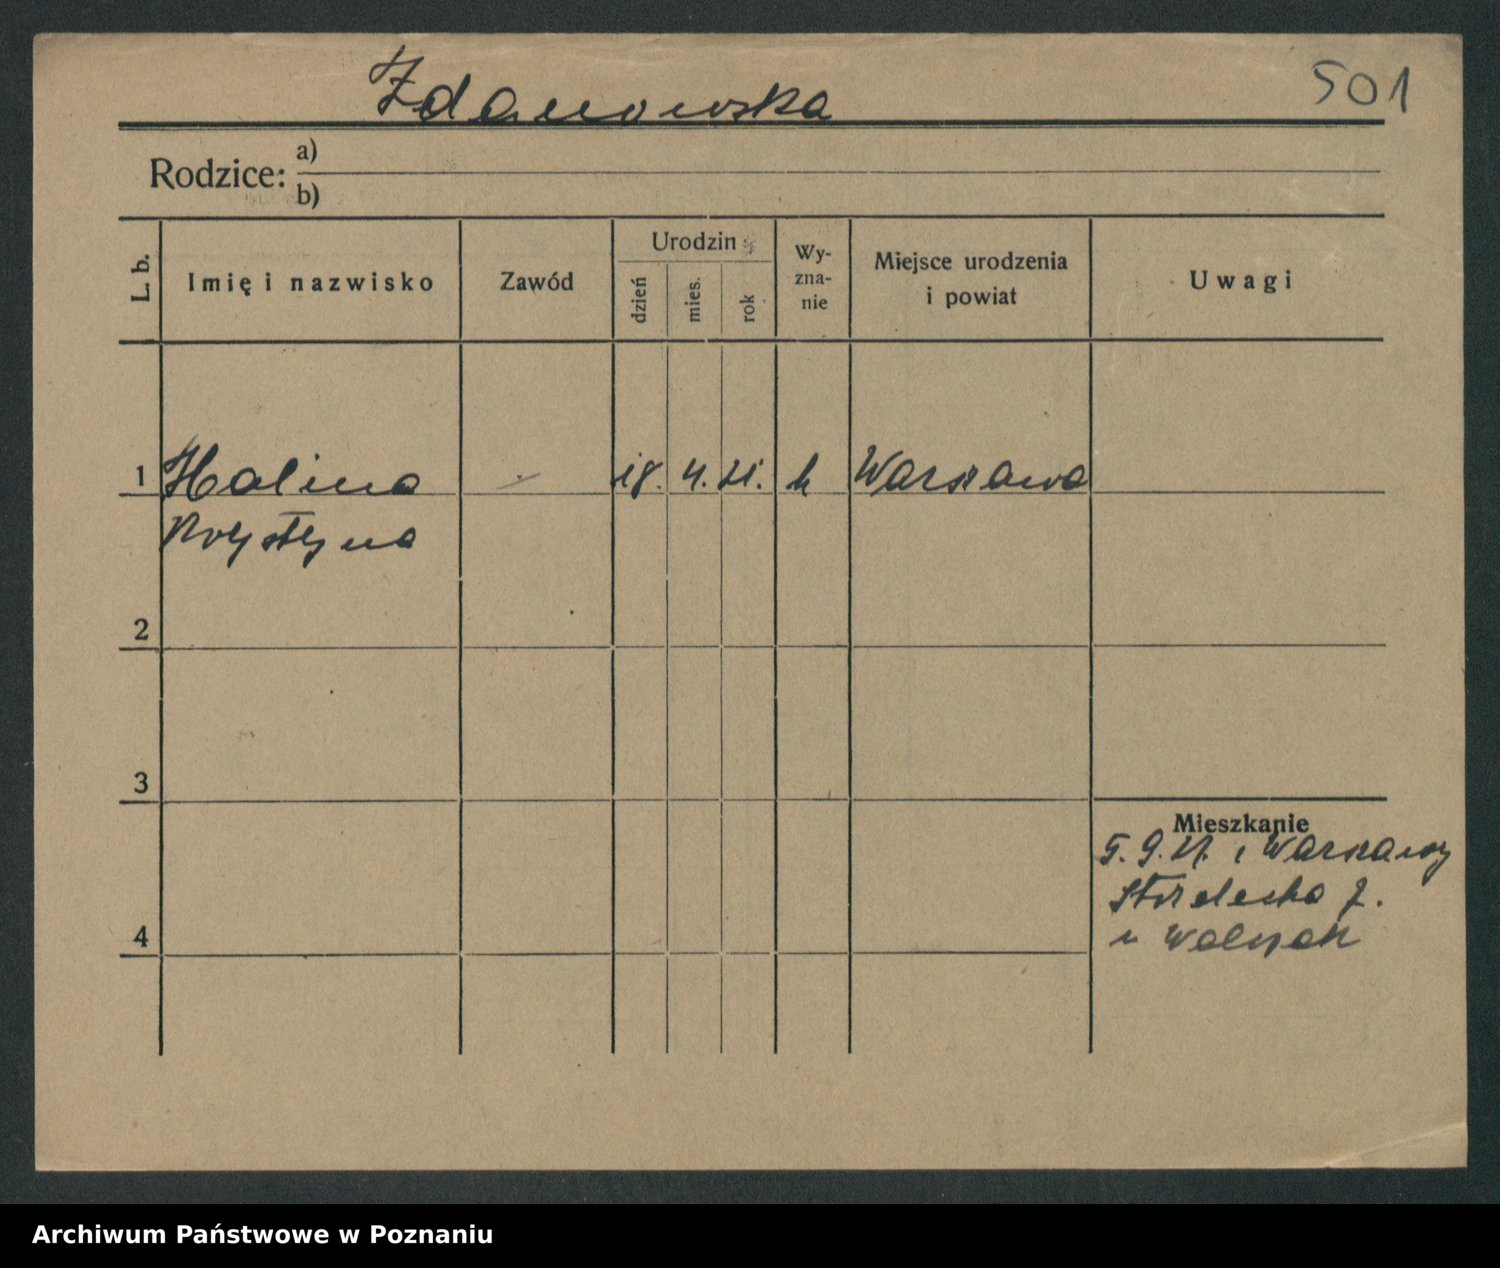 Zdanowska 501
Rodzice: a)
b)
L. b. Imię i nazwisko Zawód Urodzin dzień mies. rok Wy-zna-nie Miejsce urodzenia i powiat Uwagi
1 Halina - 18. 4. 21. k Warszawa
Krystyna
2
3
Mieszkanie
5. 9. 21. z Warszawy
Strzelecka 7.
4
u Walczak
Archiwum Państwowe w Poznaniu